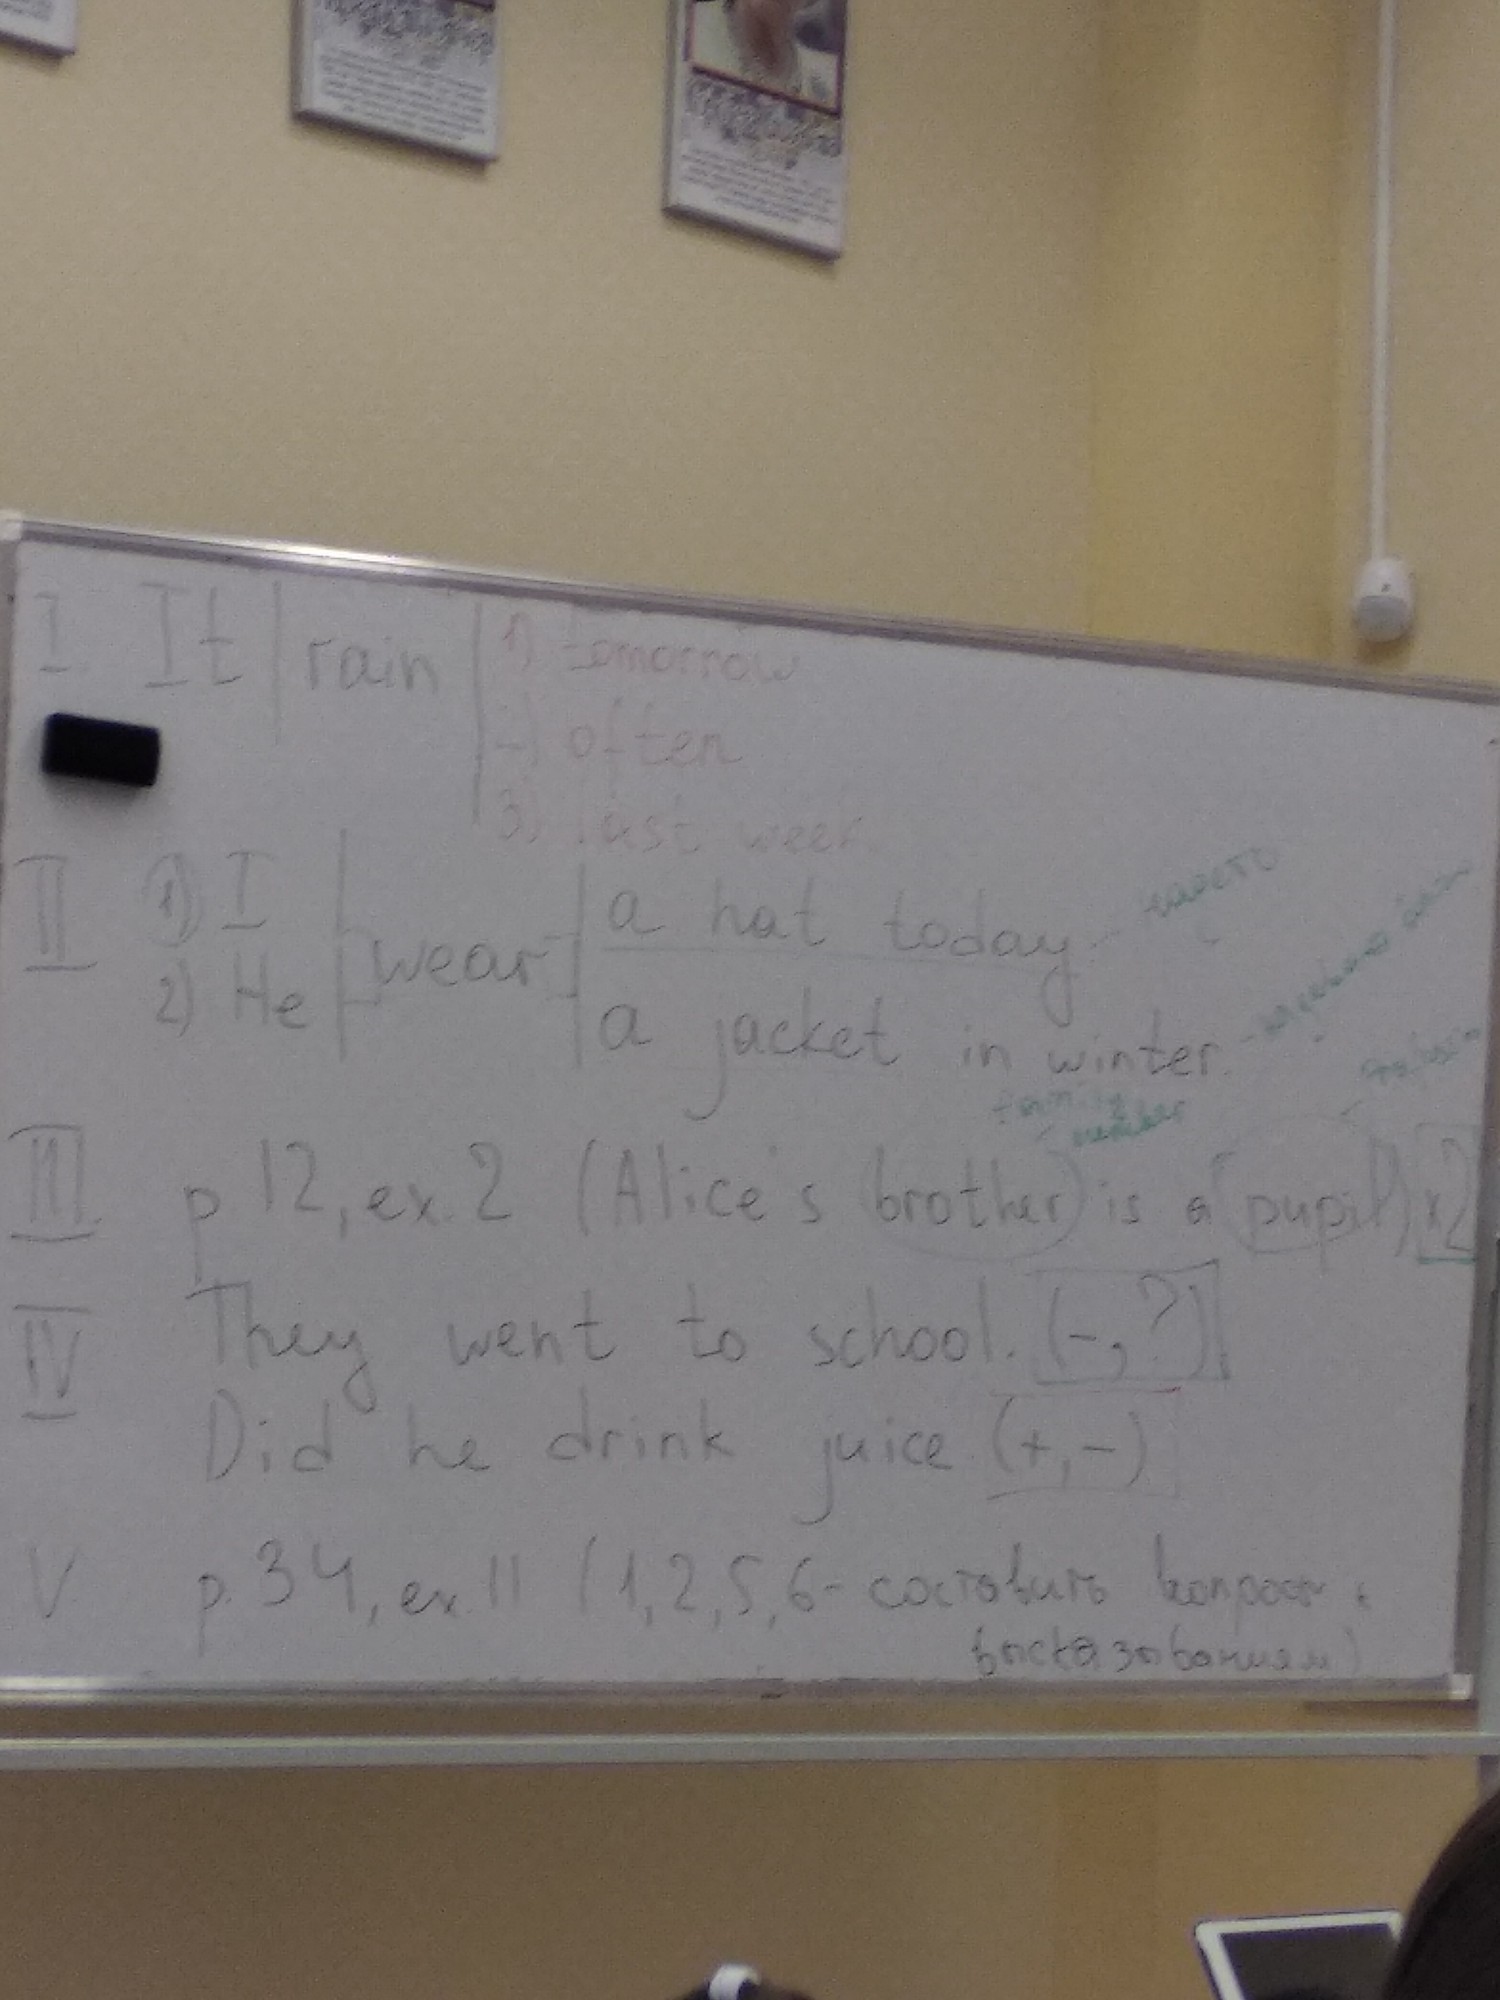 I. It | rain | 1) tomorrow
2) often
3) last week
II 1) I | wear | a hat today
2) He a jacket in winter.
family
member
III p 12, ex. 2 (Alice's brother is a pupil) x2
IV They went to school. (-, ?)
Did he drink juice (+, -)
V p. 34, ex. 11 (1, 2, 5, 6 - составить вопросы к
высказываниям)